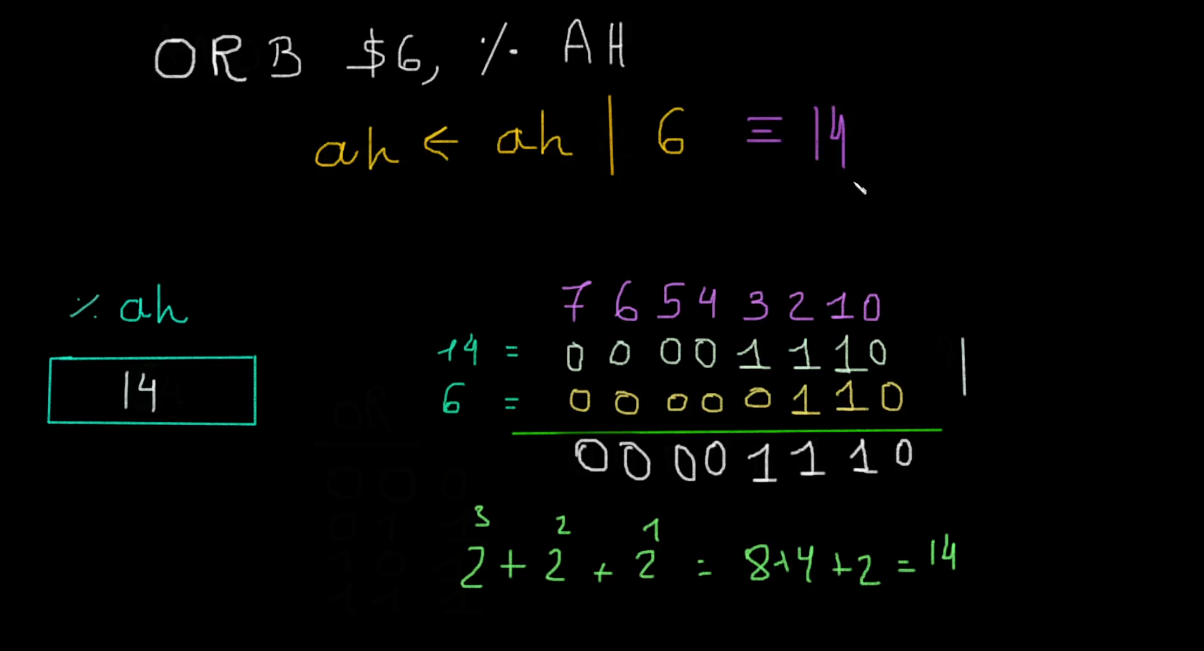 ORB $6, % AH
ah ← ah | 6 ≡ 14
% ah
14
7 6 5 4 3 2 1 0
14 = 0 0 0 0 1 1 1 0 |
6 = 0 0 0 0 0 1 1 0
0 0 0 0 1 1 1 0
2³ + 2² + 2¹ = 8+4+2 = 14
OR
0 0 0
0 1
1 0
1 1